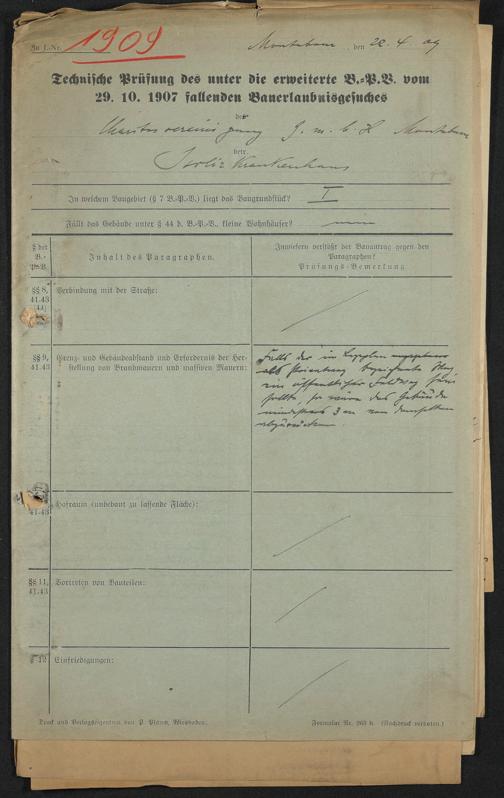 Zu I.-Nr. 1909 Montabaur, den 22. 4. 09
Technische Prüfung des unter die erweiterte B.=P.V. vom
29. 10. 1907 fallenden Bauerlaubnisgesuches
der
G. m. b. H. Montabaur
betr.
Krankenhaus
In welchem Baugebiet (§ 7 B.=P.=V.) liegt das Baugrundstück? I
Fällt das Gebäude unter § 44 d. B.=P.=V., kleine Wohnhäuser?
§ der B.=P.=V.
Inhalt des Paragraphen.
Inwiefern verstößt der Bauantrag gegen den
Paragraphen?
Prüfungs=Bemerkung
§§ 8, 41.43 (44)
Verbindung mit der Straße:
§§ 9, 41.43
Grenz= und Gebäudeabstand und Erfordernis der Her=
stellung von Brandmauern und massiven Mauern:
Falls der im Lageplan
als bezeichnete Weg
ein öffentlicher Feldweg sein
sollte, so wäre das Gebäude
mindestens 3 m von demselben
abzurücken.
41.43
Hofraum (unbebaut zu lassende Fläche):
§§ 11, 41.43
Vortreten von Bauteilen:
§ 12
Einfriedigungen:
Druck und Verlagseigentum von P. Plaum, Wiesbaden.
Formular Nr. 263 b. (Nachdruck verboten.)